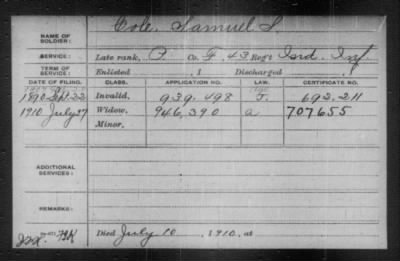 NAME OF SOLDIER: Cole, Samuel S.
SERVICE: Late rank, P. Co. F, 43 Reg't Ind. Inf.
TERM OF SERVICE: Enlisted , 1 Discharged , 1
DATE OF FILING. CLASS. APPLICATION NO. LAW. CERTIFICATE NO.
1890 Sept. 22 Invalid, 939.498 J. 692.211
1910 July 27 Widow, 946,390 a 707655
Minor,
ADDITIONAL SERVICES:
REMARKS:
Died July 10, 1910, at